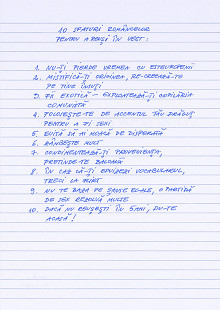 10 SFATURI ROMÂNCELOR
PENTRU A REUȘI ÎN VEST:
1. NU-ȚI PIERDE VREMEA CU ESTEUROPENI
2. MISTIFICĂ-ȚI ORIGINEA, RE-CREEAZĂ-TE
PE TINE ÎNSUȚI
3. FII EXOTICĂ – EXPLOATEAZĂ-ȚI COPILĂRIA
COMUNISTĂ
4. FOLOSEȘTE-TE DE ACCENTUL TĂU DRĂGUȚ
PENTRU A FI SEXI
5. EVITĂ SĂ AI MOACĂ DE DISPERATĂ
6. ZÂMBEȘTE MULT
7. CONDIMENTEAZĂ-ȚI PROVENIENȚA,
PRETINDE-TE BALCANĂ
8. ÎN CAZ CĂ-ȚI EPUIZEZI VOCABULARUL,
TRECI LA FLIRT
9. NU TE BAZA PE ȘANSE EGALE, O PARTIDĂ
DE SEX REZOLVĂ MULTE
10. DACĂ NU REUȘEȘTI ÎN 5 ANI, DU-TE
ACASĂ!